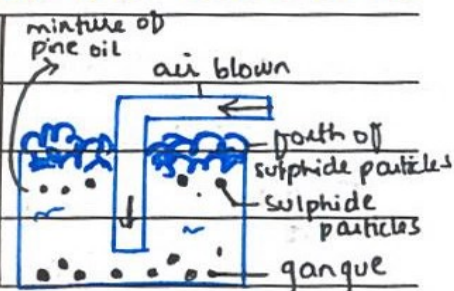 minture of
pine oil
air blown
forth of
sulphide particles
sulphide
particles
gangue